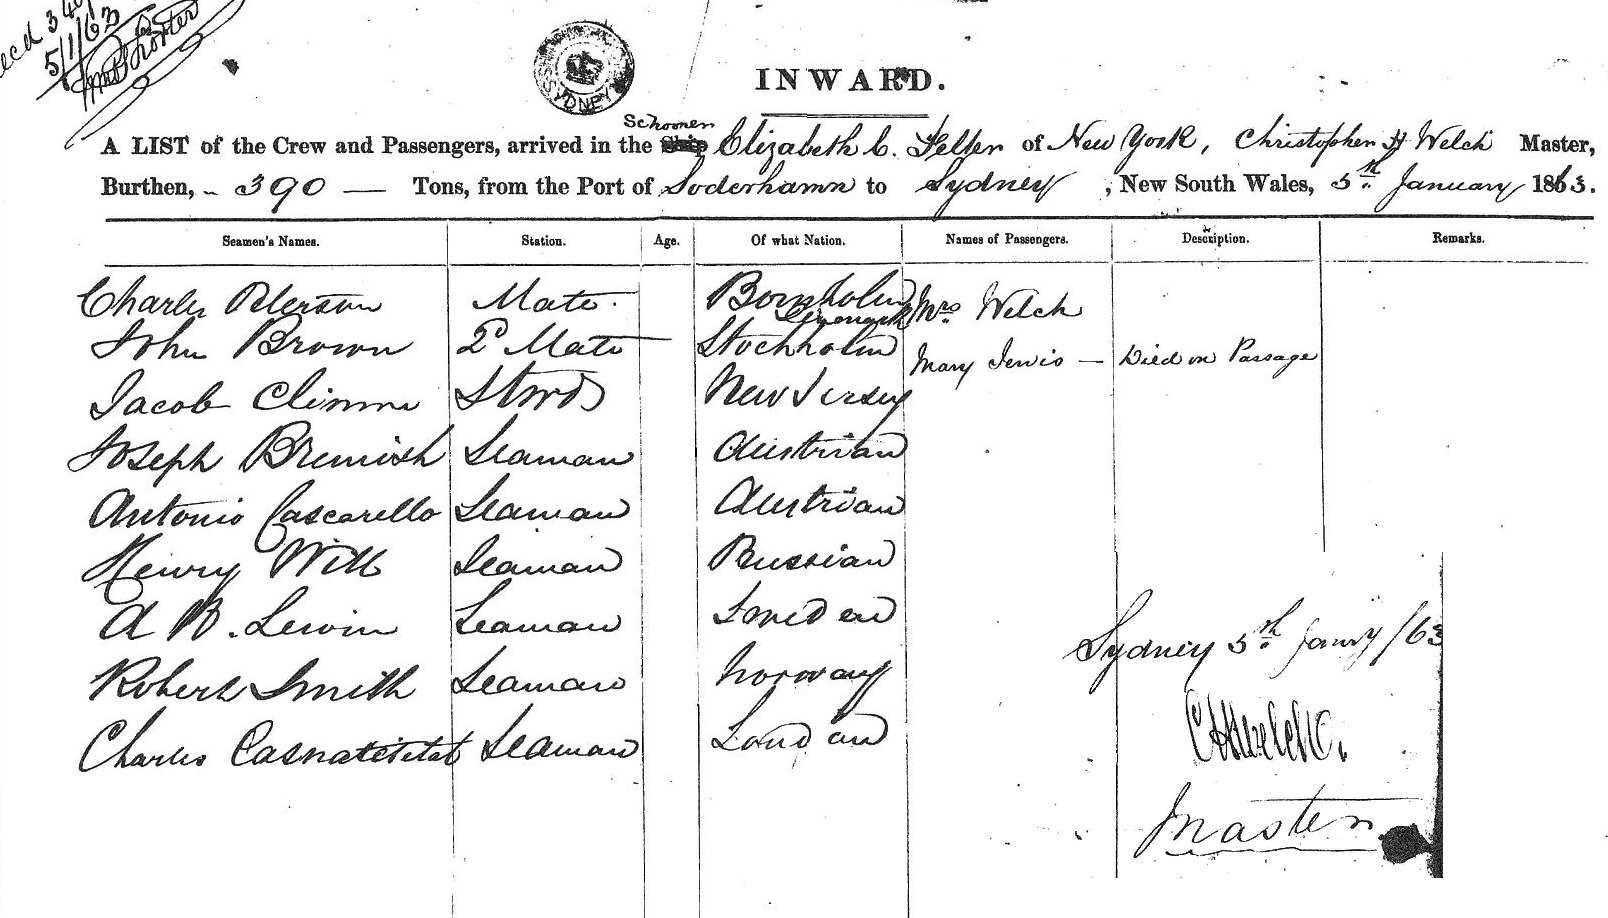 5/1/63
SYDNEY
INWARD.
Schooner
A LIST of the Crew and Passengers, arrived in the Ship Elizabeth C. Felter of New York, Christopher H Welch Master,
Burthen, - 390 — Tons, from the Port of Soderhamn to Sydney, New South Wales, 5th January 1863.
Seamen's Names. Station. Age. Of what Nation. Names of Passengers. Description. Remarks.
Charles Peterson Mate Bornholm Denmark Mrs Welch
John Brown 2d Mate Stockholm Mary Lewis — Died on Passage
Jacob Stwd New Jersey
Joseph Seaman Austrian
Antonio Cascarello Seaman Austrian
Henry Will Seaman Russian
A W. Lewin Seaman Sweden
Robert Smith Seaman Norway
Charles Seaman
Sydney 5th Janry /63
C H Welch
Master